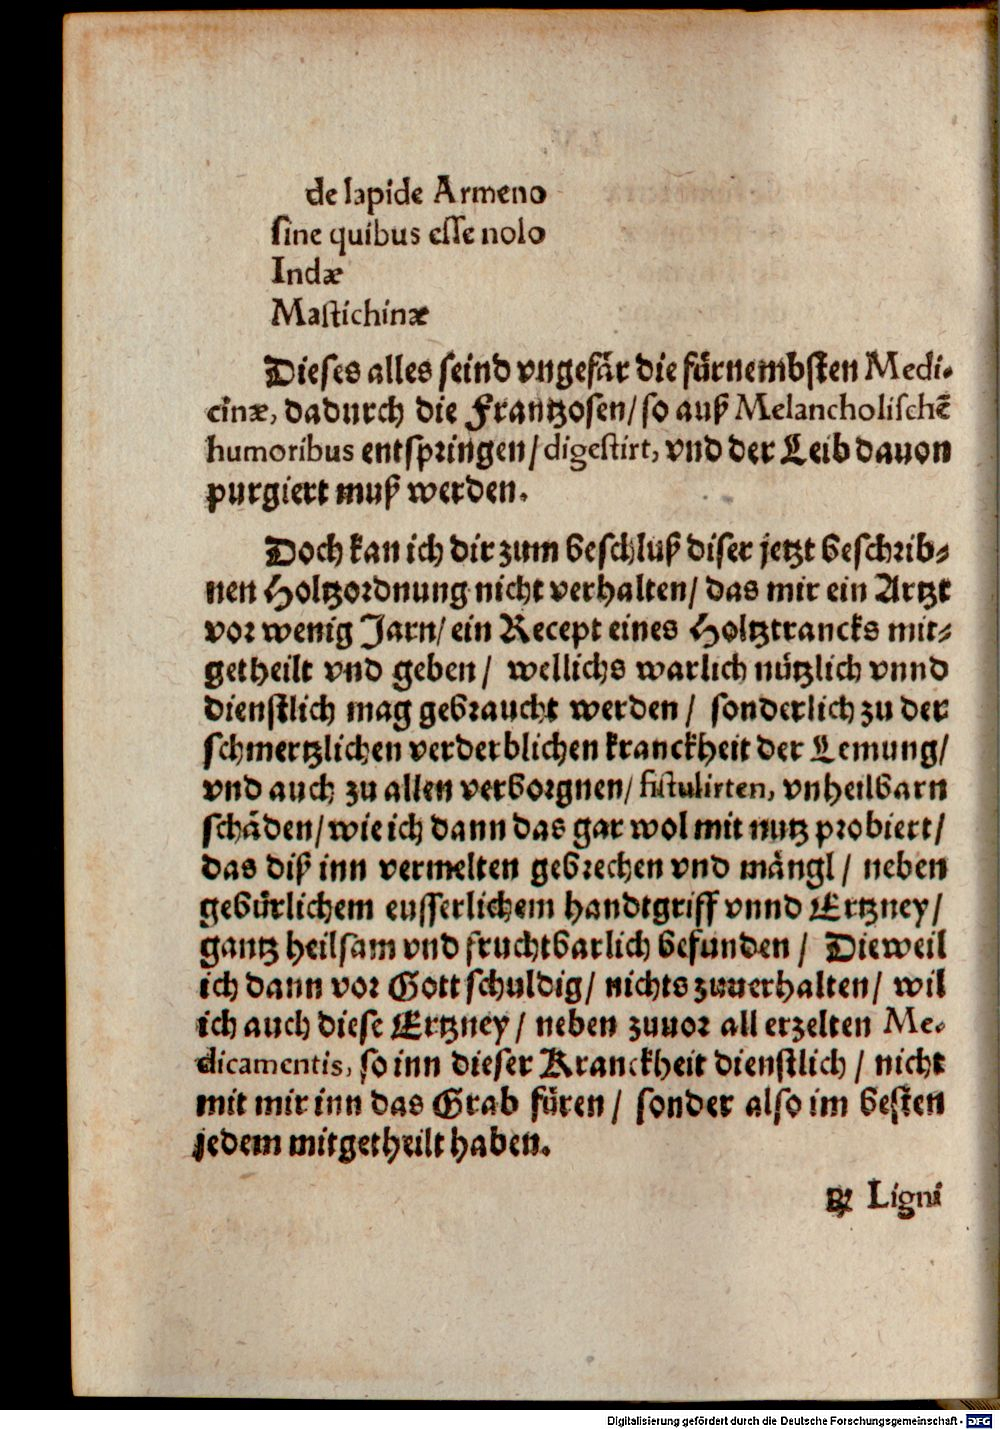 de lapide Armeno
ſine quibus eſſe nolo
Indæ
Maſtichinæ
Dieſes alles ſeind vngefär die fürnembſten Medi-
cinæ, dadurch die Frantzoſen/ ſo auß Melancholiſchē
humoribus entſpringen/ digeſtirt, vnd der Leib dauon
purgiert muß werden.
Doch kan ich dir zum beſchluß diſer jetzt beſchrib-
nen Holtzordnung nicht verhalten/ das mir ein Artzt
vor wenig Jarn/ ein Recept eines Holtztrancks mit-
getheilt vnd geben/ wellichs warlich nützlich vnnd
dienſtlich mag gebraucht werden/ ſonderlich zu der
ſchmertzlichen verderblichen kranckheit der Lemung/
vnd auch zu allen verborgnen/ fiſtulirten, vnheilbarn
ſchäden/ wie ich dann das gar wol mit nutz probiert/
das diß inn vermelten gebrechen vnd mängl/ neben
gebürlichem euſſerlichem handtgriff vnnd Ertzney/
gantz heilſam vnd fruchtbarlich befunden/ Dieweil
ich dann vor Gott ſchuldig/ nichts zuuerhalten/ wil
ich auch dieſe Ertzney/ neben zuuor all erzelten Me-
dicamentis, ſo inn dieſer Kranckheit dienſtlich/ nicht
mit mir inn das Grab füren/ ſonder alſo im beſten
jedem mitgetheilt haben.
℞ Ligni
Digitalisierung gefördert durch die Deutsche Forschungsgemeinschaft - DFG